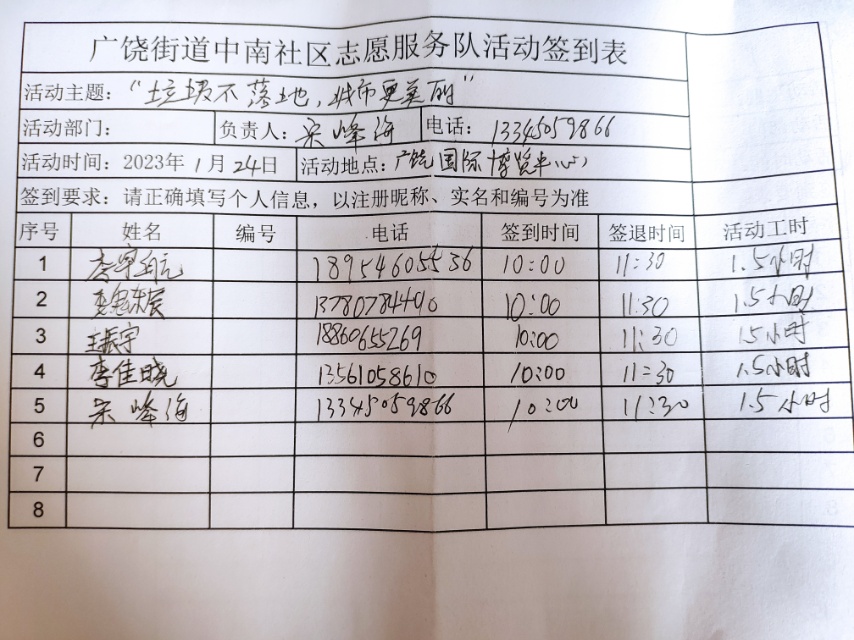 广饶街道中南社区志愿服务队活动签到表
活动主题：“垃圾不落地，城市更美丽”
活动部门： 负责人：宋峰海 电话：13345059866
活动时间：2023年1月24日 活动地点：广饶国际博览中心
签到要求：请正确填写个人信息，以注册昵称、实名和编号为准
序号 姓名 编号 电话 签到时间 签退时间 活动工时
1 18954605536 10:00 11:30 1.5小时
2 13780784490 10:00 11:30 1.5小时
3 王振宇 18860655269 10:00 11:30 1.5小时
4 李佳晓 13561058610 10:00 11:30 1.5小时
5 宋峰海 13345059866 10:00 11:30 1.5小时
6
7
8